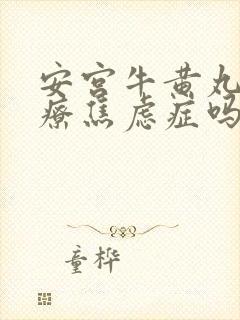 安宫牛黄丸
疗焦虑症吗
童桦